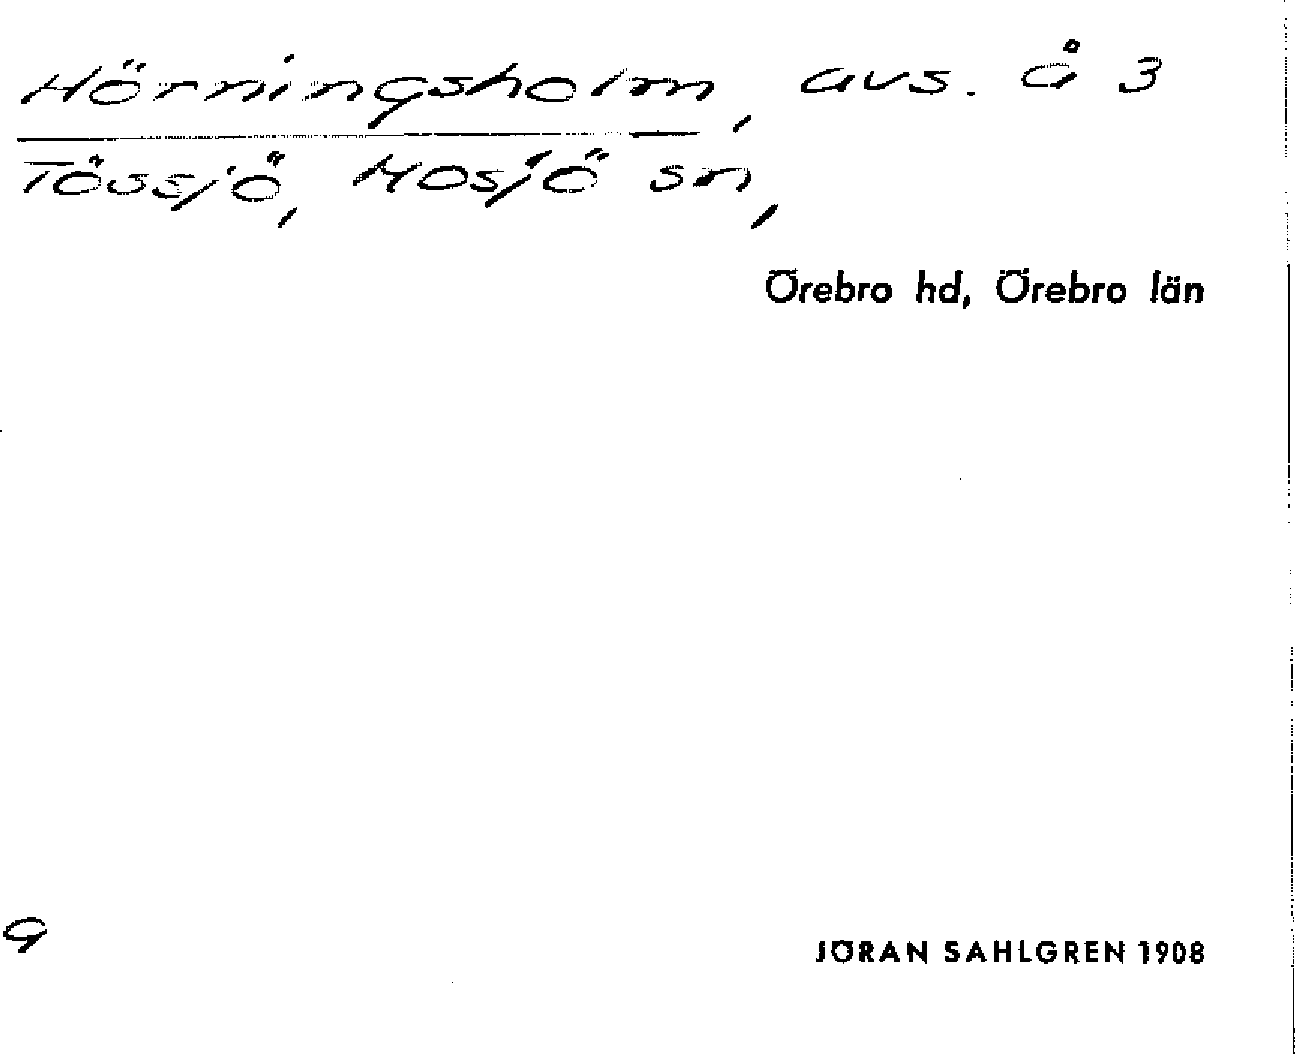 Hörningsholm, avs. å 3
Tössjö, Mosjö sn,
Örebro hd, Örebro län
9
JÖRAN SAHLGREN 1908